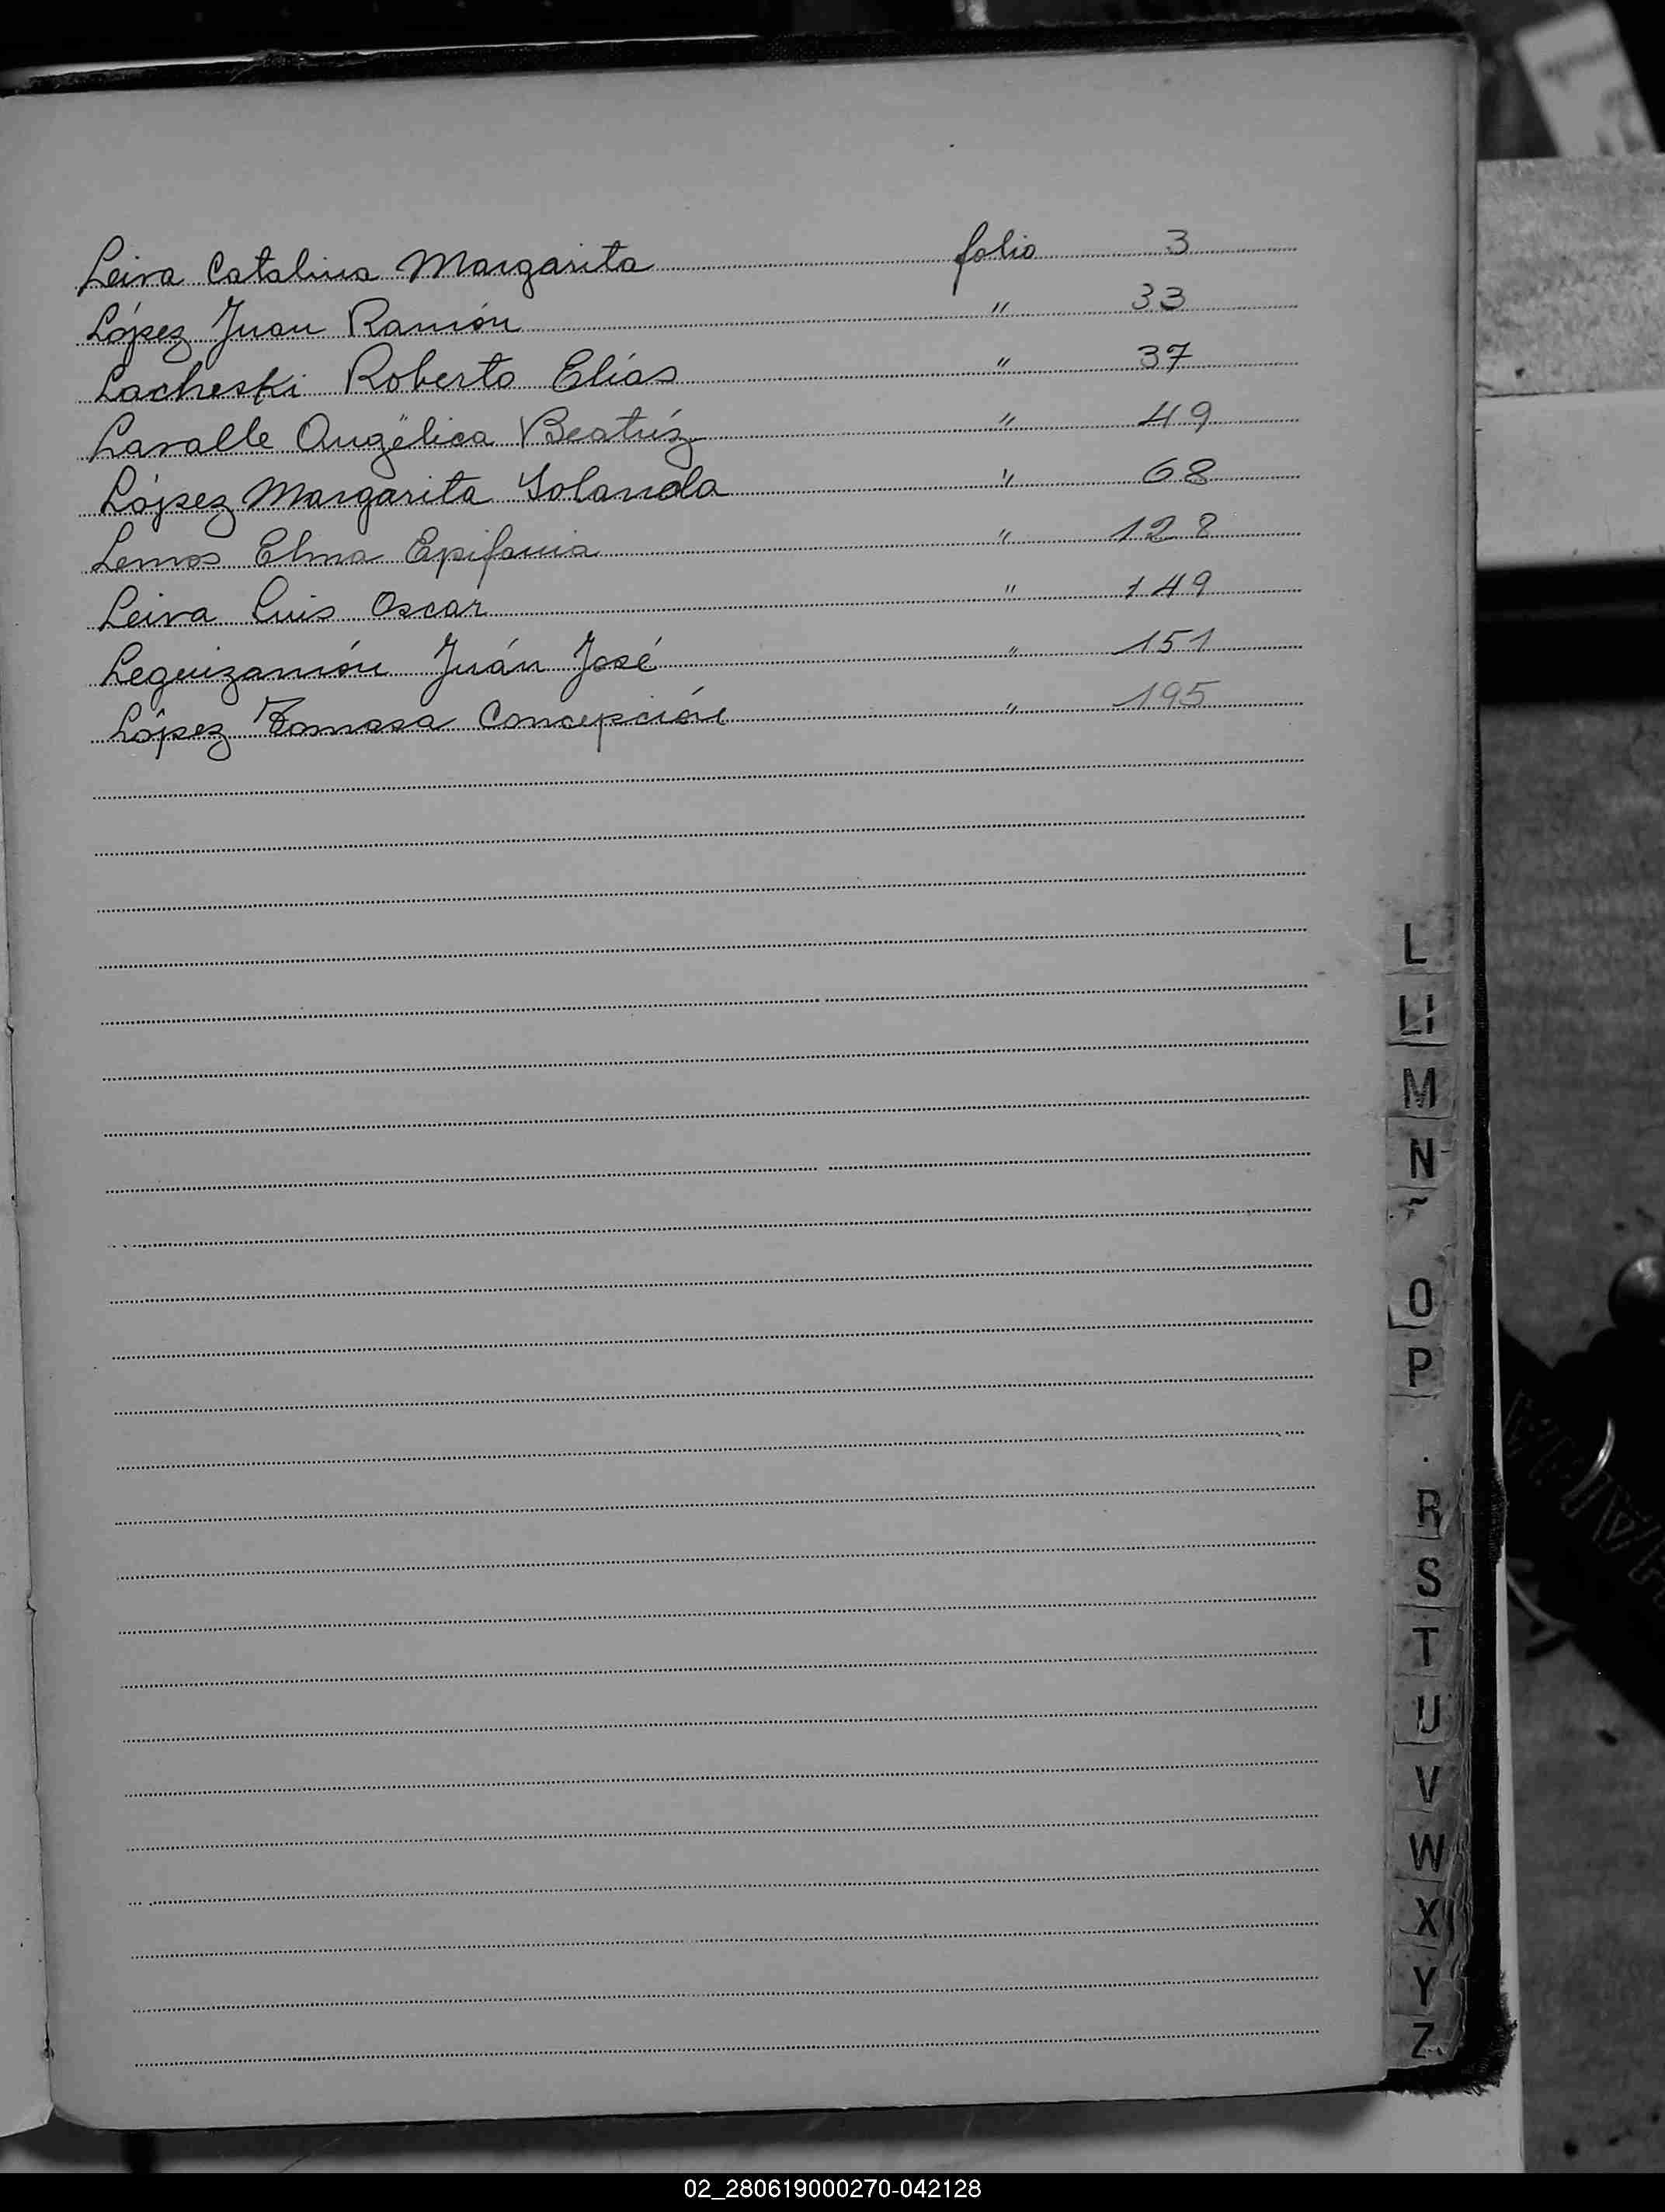 Leiva Catalina Margarita folio 3
López Juan Ramón " 33
Lacheski Roberto Elías " 37
Lavalle Angélica Beatríz " 49
López Margarita Yolanda " 68
Lemos Elma Epifania " 128
Leiva Luis Oscar " 149
Leguizamón Juán José " 151
López Tomasa Concepción " 195
L
Ll
M
N
O
P
R
S
T
U
V
W
X
Y
Z
02_280619000270-042128